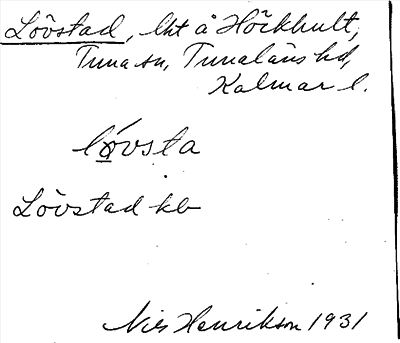 Lövstad, lht å Hökhult,
Tuna sn, Tunaläns hd,
Kalmar l.
lǿvsta
Lövstad kb
Nils Henrikson 1931